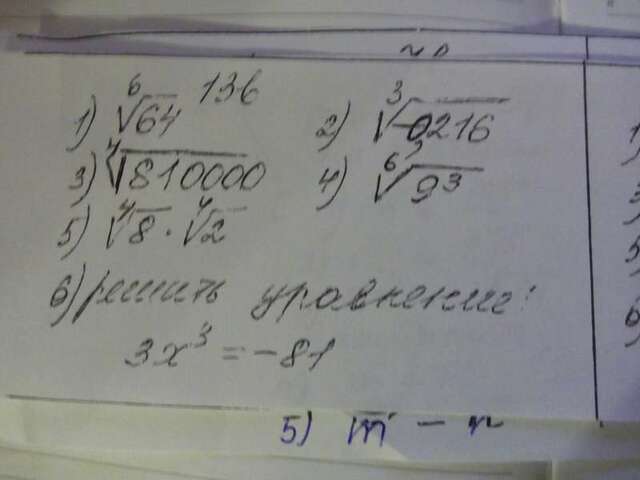 1) ⁶√64 136 2) ³√-0,216
3) ⁴√810000 4) ⁶√9³
5) ⁴√8 · ⁴√2
6) решить уравнение:
3x³ = -81
5) m - n